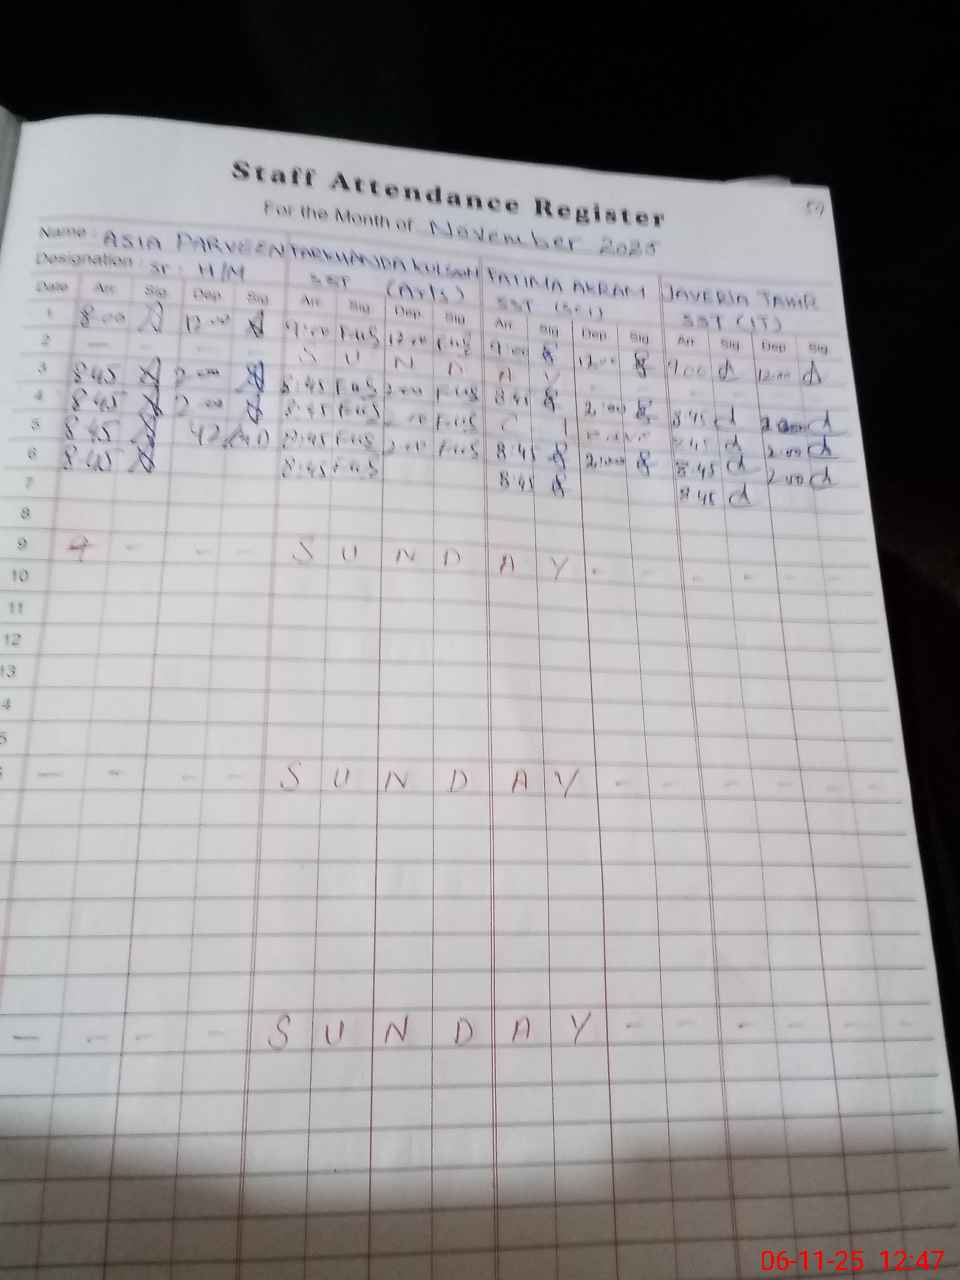 59
Staff Attendance Register
For the Month of November 2025
Name: ASIA PARVEEN FARKHANDA KULSOOM FATIMA AKRAM JAVERIA TAHIR
Designation: Sr. H/M SST (Arts) SST (Sci) SST (IT)
Date Arr Sig Dep Sig Arr Sig Dep Sig Arr Sig Dep Sig Arr Sig Dep Sig
1 8:00 12:00 9:00 12:00 9:00 12:00 9:00 12:00
2 — S U N D A Y
3 8:45 2:00 8:45 2:00 8:45 2:00 8:45 2:00
4 8:45 2:00 8:45 2:00 C 8:45 2:00
5 8:45 8:45 2:00 8:45 2:00 8:45 2:00
6 8:45 8:45 8:45 8:45
7
8
9 - - - S U N D A Y - - - - - -
10
11
12
13
4
5
— - - - S U N D A Y - - - - - -
— - - - S U N D A Y - - - - - -
06-11-25 12:47